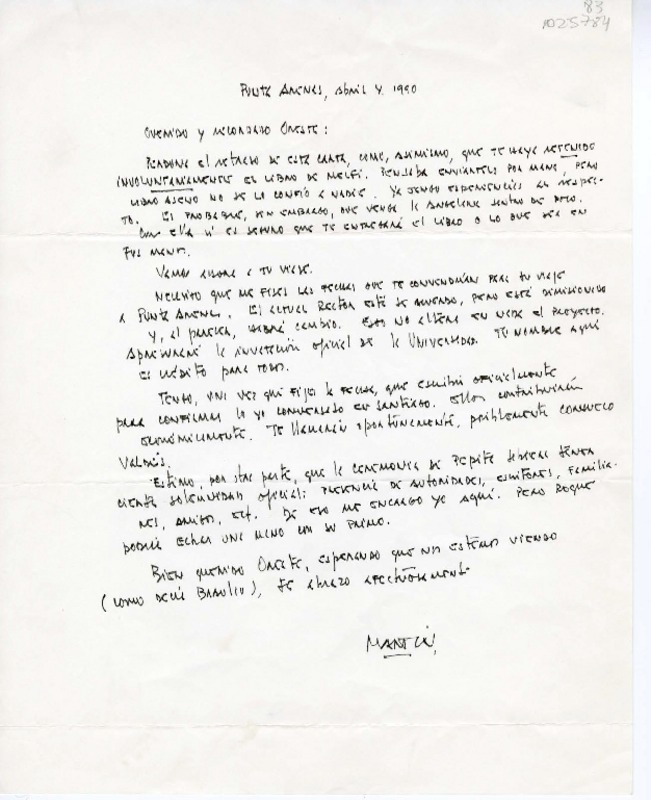 83
1025784
Punta Arenas, abril 4 1990
Querido y recordado Oreste:
Perdona el retraso de esta carta, como, asimismo, que te haya retenido
involuntariamente el libro de Melfi. Pensaba enviártelo por mano, pero
libro ajeno no se lo confío a nadie. Ya tengo experiencias al respec-
to. Es probable, sin embargo, que venga la dentro de poco.
Con ella sí es seguro que te entregaré el libro o lo que sea en
tus manos.
Vamos ahora a tu viaje.
Necesito que me fijes las fechas que te convendrían para tu viaje
a Punta Arenas. El actual Rector está de acuerdo, pero está dimisionado
y, al parecer, habrá cambio. Esto no altera en nada el proyecto.
Apresuraré la invitación oficial de la Universidad. Tu nombre aquí
es crédito para todo.
Tengo, una vez que fijes la fecha, que escribir oficialmente
para confirmar lo ya conversado en Santiago. Ellos contribuirán
económicamente. Te llamarán oportunamente, posiblemente Consuelo
Valdés.
Estimo, por otra parte, que la ceremonia de Pepita deberá tener
cierta solemnidad oficial: presencia de autoridades, escritores, familia-
res, amigos, etc. De eso me encargo yo aquí. Pero Roque
podría echar una mano con su primo.
Bien querido Oreste, esperando que nos estemos viendo
(como decía Braulio), te abrazo afectuosamente
Martín